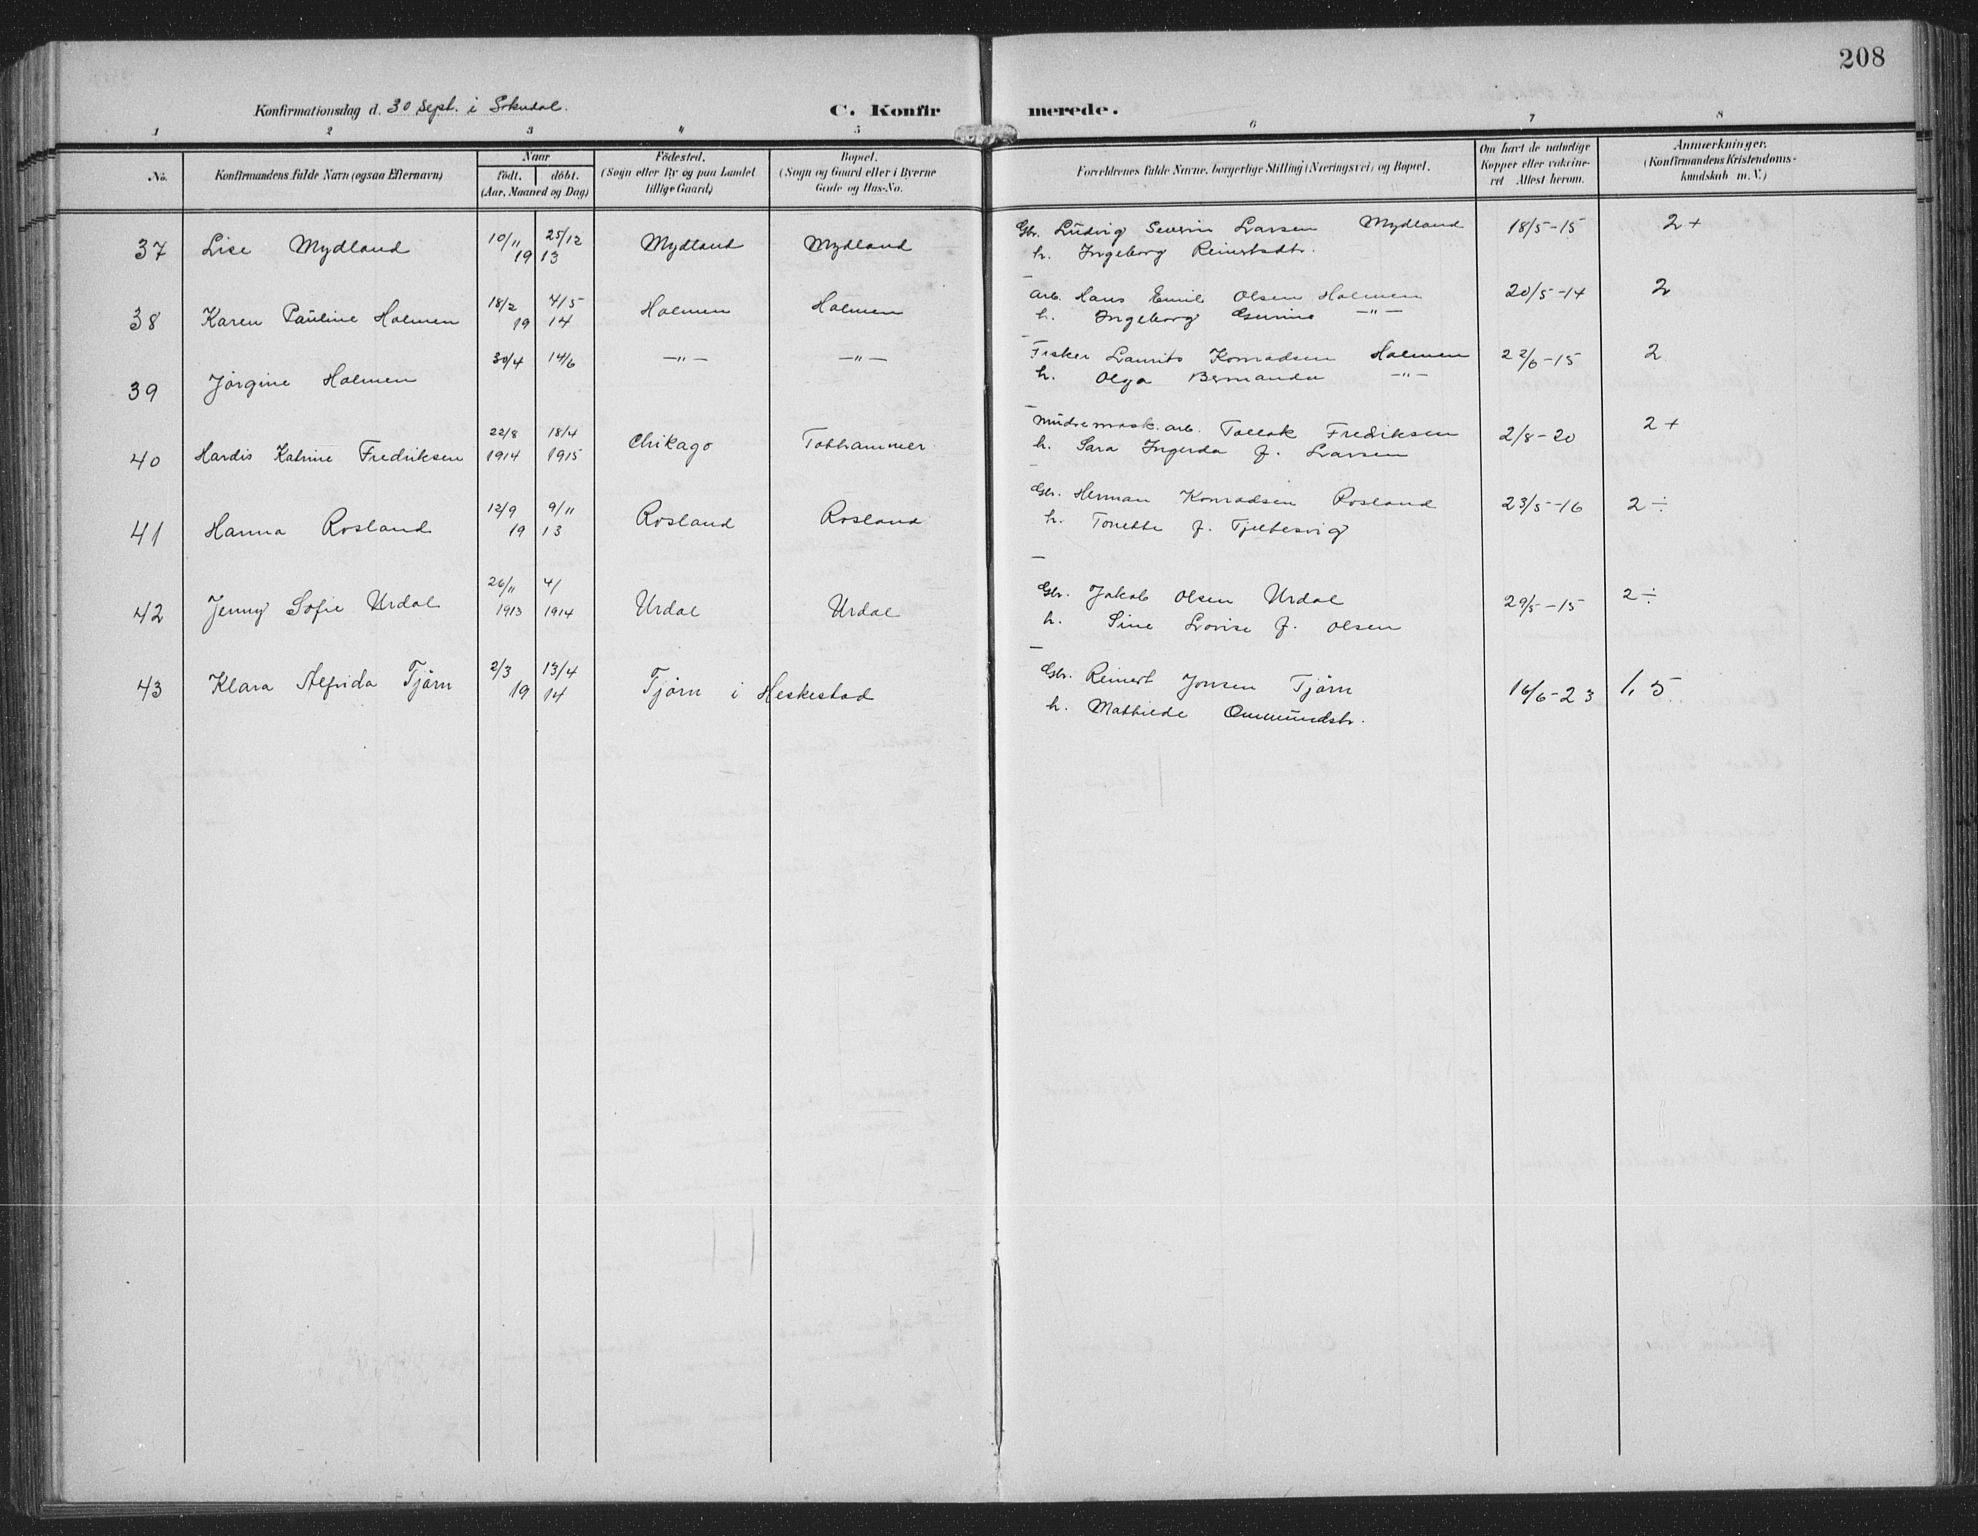 208
Konfirmationsdag d. 30 Sept. i Sokndal.
C. Konfirmerede.
1 2 3 4 5 6 7 8
No.
Konfirmandens fulde Navn (ogsaa Efternavn)
Naar
født. døbt.
(Aar, Maaned og Dag)
Fødested.
(Sogn eller By og paa Landet
tillige Gaard)
Bopæl.
(Sogn og Gaard eller i Byerne
Gade og Hus-No.
Forældrenes fulde Navne, borgerlige Stilling (Næringsvei) og Bopæl.
Om havt de naturlige
Kopper eller vaccine-
ret Attest herom.
Anmærkninger.
(Konfirmandens Kristendoms-
kundskab m. V.)
37 Lise Mydland 10/11 25/12 Mydland Mydland Gbr. Ludvig Severin Larsen Mydland 18/5-15 2+
19 13 h. Ingeborg Reinertsdtr.
38 Karen Pauline Holmen 18/2 4/5 Holmen Holmen Arb. Hans Emil Olsen Holmen 20/5-14 2
19 14 h. Ingeborg Gurine —"—
39 Jørgine Holmen 30/4 14/6 —"— —"— Fisker Laurits Konradsen Holmen 22/6-15 2
h. Olga Bernanda —"—
40 Hardis Katrine Fredriksen 22/8 18/4 Chikago Tothammer Mudremask. arb. Tollak Fredriksen 2/8-20 2+
1914 1915 h. Sara Ingerda f. Larsen
41 Hanna Rosland 12/9 9/11 Rosland Rosland Gbr. Herman Konradsen Rosland 23/5-16 2÷
19 13 h. Tonette f. Tjeltesvig
42 Jenny Sofie Urdal 26/11 4/1 Urdal Urdal Gbr. Jakob Olsen Urdal 29/5-15 2÷
1913 1914 h. Sine Lovise f. Olsen
43 Klara Alfrida Tjørn 2/3 13/4 Tjørn i Heskestad Gbr. Reinert Jonsen Tjørn 16/6-23 1,5
19 14 h. Mathilde Ommundsdtr.